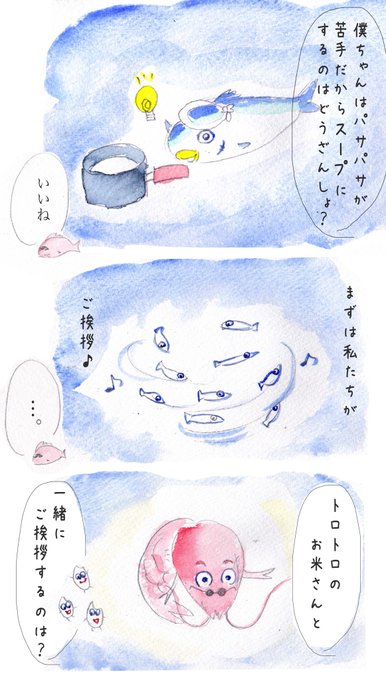 僕ちゃんはパサパサが
苦手だからスープに
するのはどうざんしょ?
いいね
まずは私たちが
ご挨拶♪
…。
トロトロの
お米さんと
一緒に
ご挨拶するのは?